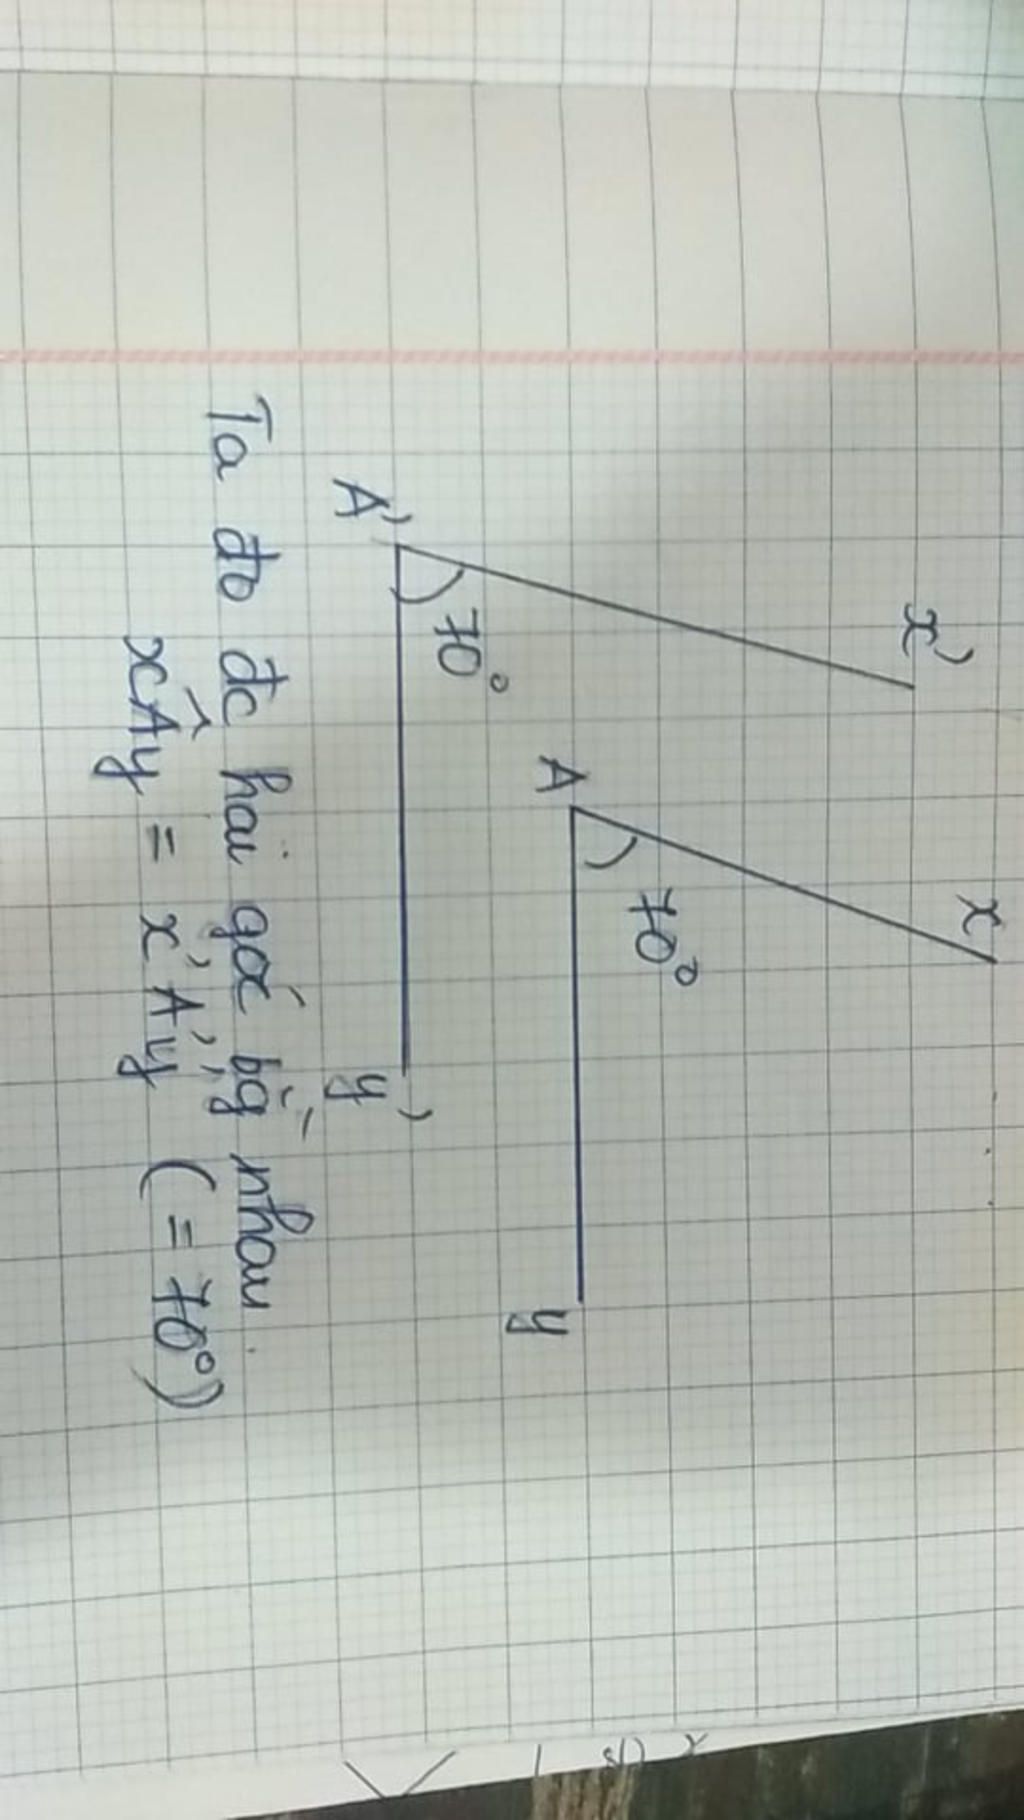 x'
x
A
70°
A'
70°
y
y'
Ta đo đc hai góc bg̀ nhau.
xÂy = x'A'y' (= 70°)